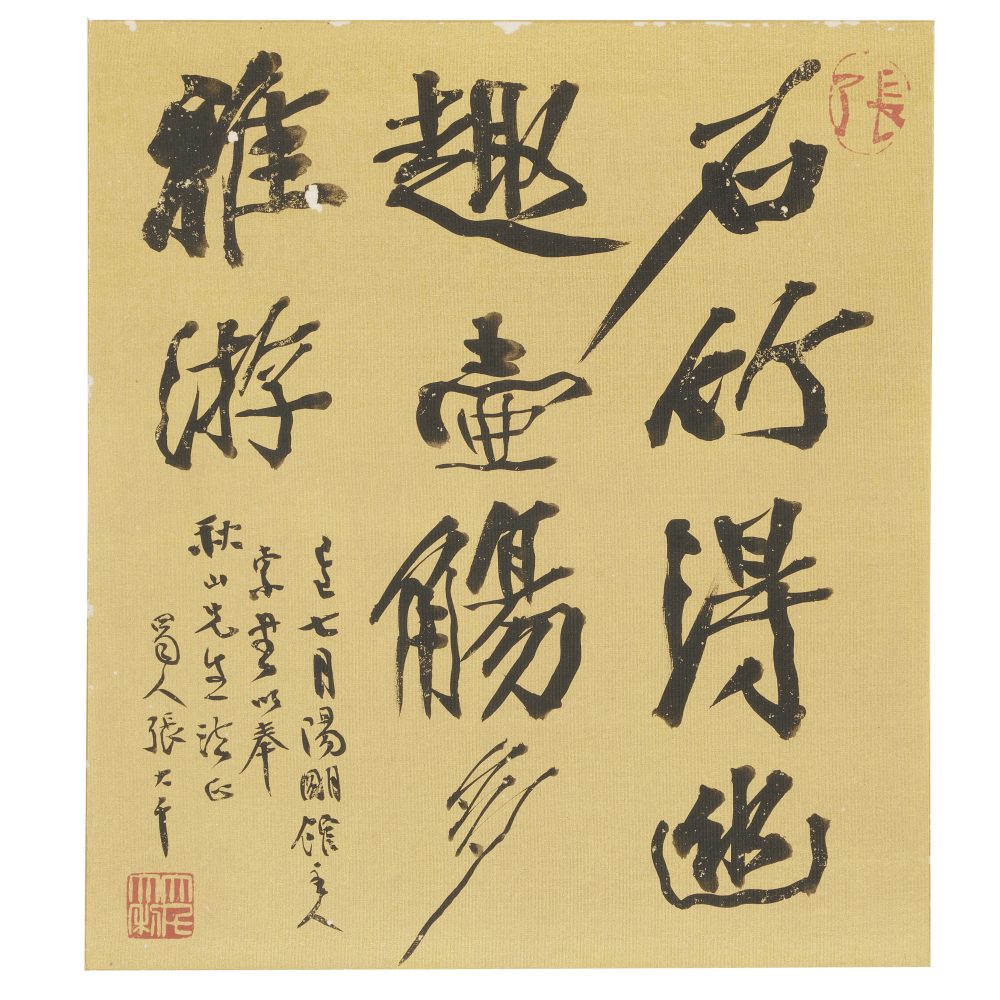 張
石竹得幽
趣壺觴多
雅游
七月陽明館主人
索書以奉
秋山先生法正
蜀人張大千